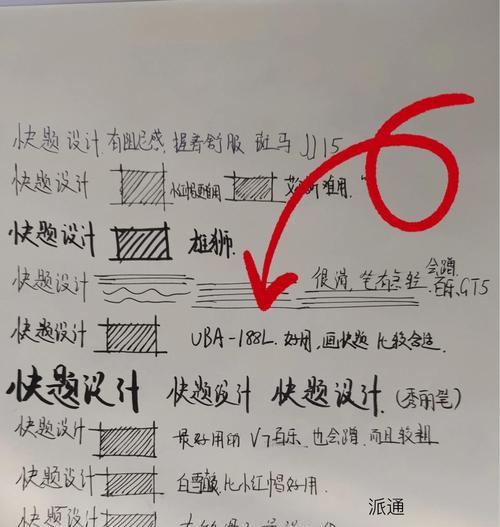 快题设计 有阻尼感 握着舒服 斑马 JJ15
快题设计 小红帽更难用 难用
快题设计 雄狮
快题设计 很滑,笔有点轻 会蹭 百乐GT5
快题设计 UBA-188L. 好用,画快题比较合适.
快题设计 快题设计 快题设计.(秀丽笔)
快题设计 最好用的 V7百乐 也会蹭,而且较粗
快题设计 白雪 比小红帽好用.
快题设计
派通